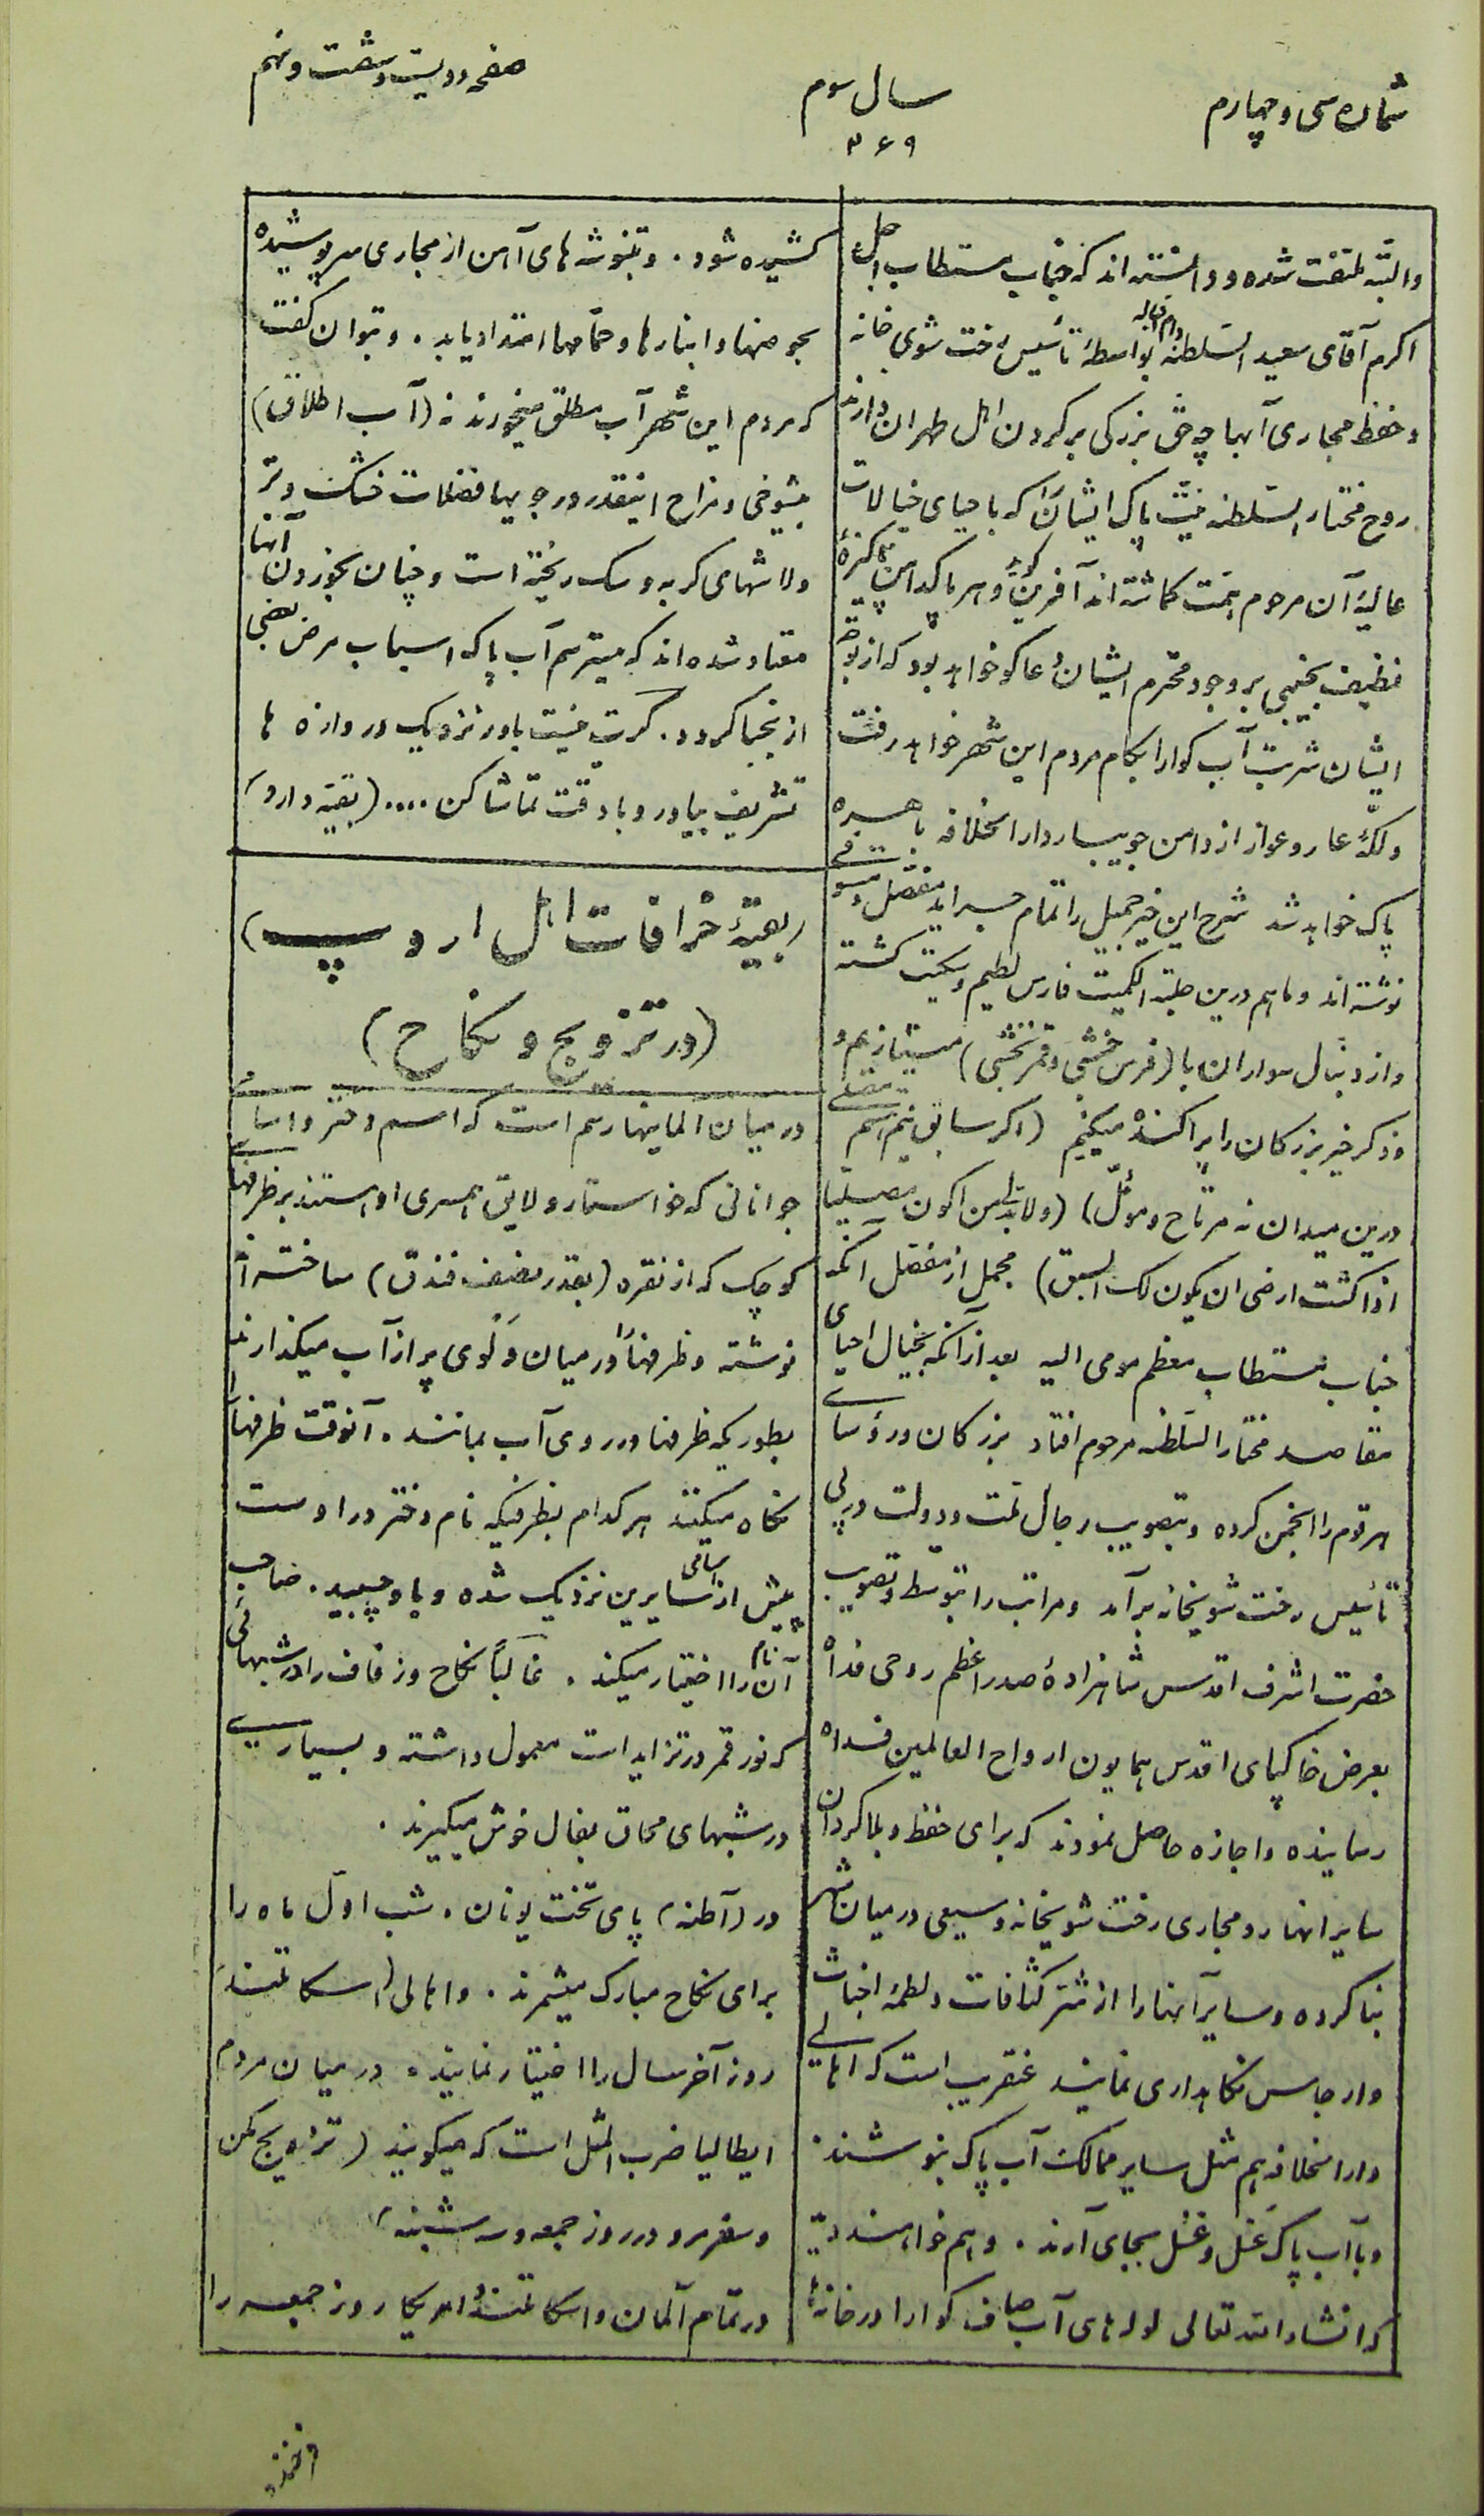 شماره سی و چهارم
سال سوم
۳۶۹
صفحه دویست و شصت و نهم
والبته ملتفت شده و دانسته اند که جناب مستطاب اجل
اکرم آقای سعید السلطنه دام اقباله بواسطهٔ تأسیس رخت شوی خانه
و حفظ مجاری آبها چه حق بزرگی بر گردن اهل طهران دارند
روح مختار السلطنه نیت پاک ایشان را که باحیای خیالات
عالیهٔ آن مرحوم همت گماشته اند آفرین گوید و هر پاکدامن پاکیزهٔ
نظیف نجیبی بر وجود محترم ایشان دعا گو خواهد بود که از توجه
ایشان شربت آب گوارا بکام مردم این شهر خواهد رفت
ولکهٔ عار و عوار از دامن جویبار دار الخلافه بالمره
پاک خواهد شد شرح این خیر جمیل را تمام جراید مفصل و مستوفی
نوشته اند و ما هم درین حلبة الکمیت فارس لطیم و سکیت گشته
و از دنبال سواران با (فرس خشبی و قمر نخشبی) میتازیم و
و ذکر خیر بزرگان را پراکنده میکنیم (اگر سابق نیم هستم مصلی
درین میدان نه مرتاح و مؤمّل) (ولابد لمن اکون مصلیا
اذا کنت ارضی ان یکون لک السبق) مجمل از مفصل آنکه
جناب مستطاب معظم مومی الیه بعد از آنکه بخیال احیای
مقاصد مختار السلطنه مرحوم افتاد بزرگان و رؤسای
هر قوم را انجمن کرده و بتصویب رجال ملت و دولت در پی
تأسیس رخت شویخانه برآمد و مراتب را بتوسط و تصویب
حضرت اشرف اقدس شاهزادهٔ صدر اعظم روحی فداه
بعرض خاکپای اقدس همایون ارواح العالمین فداه
رسانیده و اجازه حاصل نمودند که برای حفظ
سایر انهار و مجاری رخت شویخانه وسیعی در میان شهر
بنا کرده و سایر آبهارا از شر کثافات و لطمهٔ اخباث
و ارجاس نگاهداری نمایند عنقریب است که اهالی
دار الخلافه هم مثل سایر ممالک آب پاک بنوشند.
و با آب پاک غَسل و غُسل بجای آرند . و هم خواهند دید
که انشاء الله تعالی لوله های آب صاف گوارا در خانها
کشیده شود . و تنبوشه های آهن از مجاری سرپوشیده
بحوضها و انبارها و حمامها امتداد یابد . و بتوان گفت
که مردم این شهر آب مطلق میخورند نه (آب اطلاق)
بیشوخی و مزاح اینقدر در جویها فضلات خشک و تر
و لاشهای گربه و سگ ریخته است و چنان بخوردن آنها
معتاد شده اند که میترسم آب پاک اسباب مرض بعضی
از نجبا گردد . گرت نیست باور نزدیک دروازه ها
تشریف بیاور و با دقت تماشا کن .... (بقیه دارد)
(بقیهٔ خرافات اهل اروپ)
(در تزویج و نکاح)
در میان المانیها رسم است که اسم دختر و اسامی
جوانانی که خواستار و لایق همسری او هستند بر ظرفهای
کوچک که از نقره (بقدر نصف فندق) ساخته اند
نوشته و ظرفها را در میان دَلوی پر از آب میگذارند
بطوریکه ظرفها در روی آب بمانند . آنوقت ظرفها را
نگاه میکنند هر کدام بظرفیکه نام دختر در اوست
پیش از اسامی سایرین نزدیک شده و باو چسبید . صاحب
آن نام را اختیار میکند . غالبًا نکاح و زفاف را در شبهائی
که نور قمر در تزاید است معمول داشته و بسیاری
در شبهای محاق بفال خوش میگیرند .
در (آطنه) پای تخت یونان ، شب اوّل ماه را
برای نکاح مبارک میشمرند . و اهالی (اسکاتلند)
روز آخر سال را اختیار نمایند . در میان مردم
ایطالیا ضرب المثل است که میگویند (تزویج مکن
و سفر مرو در روز جمعه و سه شنبه)
در تمام آلمان و اسکاتلند و امریکا روز جمعه را